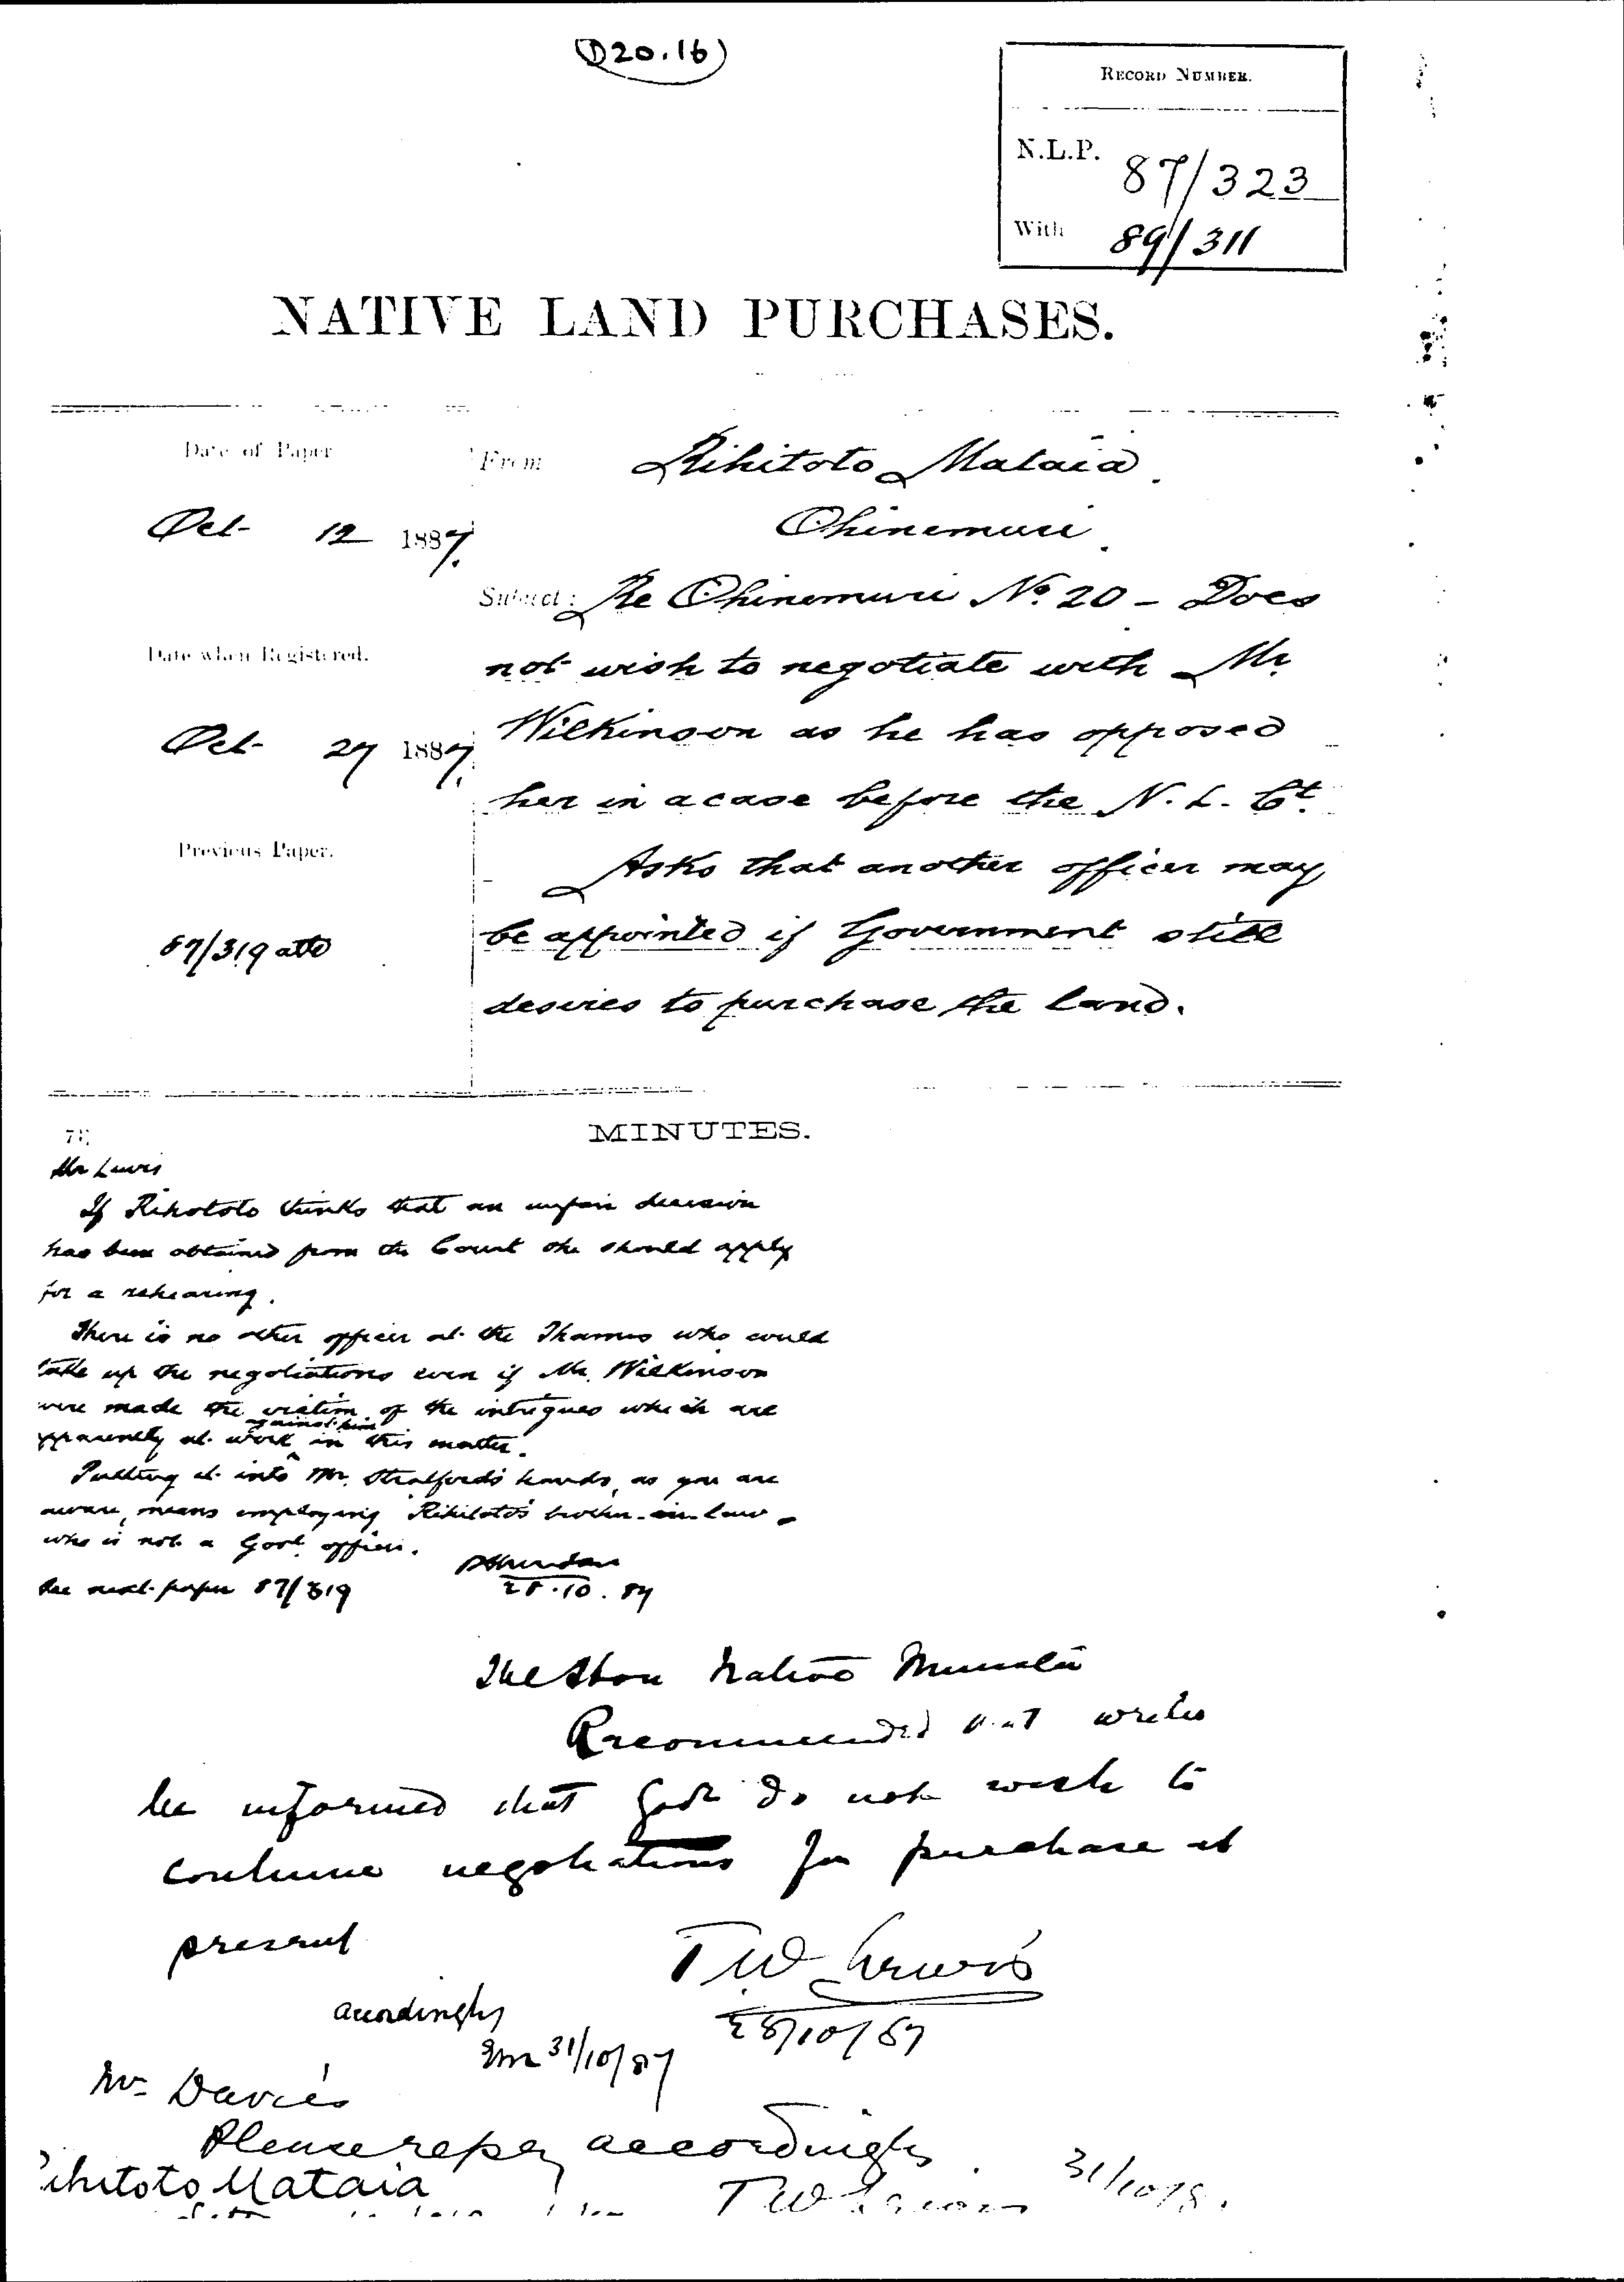 (D20.16)
RECORD NUMBER.
N.L.P. 87/323
With 89/311
NATIVE LAND PURCHASES.
Date of Paper
From Rihitoto Mataia.
Ohinemuri.
Oct 12 1887.
Subject: Re Ohinemuri No. 20 - Does
not wish to negotiate with Mr.
Date when Registered.
Wilkinson as he has opposed
Oct 27 1887.
her in a case before the N. L. Ct.
Previous Paper.
Asks that another officer may
be appointed if Government still
87/319 attd
desires to purchase the land.
MINUTES.
Mr Lewis
If Rihitoto thinks that an unfair decision
has been obtained from the Court she should apply
for a rehearing.
There is no other officer at the Thames who could
take up the negotiations even if Mr. Wilkinson
were made the victim of the intrigues which are
apparently at work against him in this matter.
Putting it into Mr. Stratford's hands, as you are
aware, means employing Rihitoto's brother-in-law
who is not a Govt. officer.
See next paper 87/319
28.10.87
The Hon Native Minister
Recommended that writer
be informed that Govt do not wish to
continue negotiations for purchase at
present
T W Lewis
28/10/87
accordingly
31/10/87
Mr Davies
Please reply accordingly.
T W Lewis 31/10/8
Rihitoto Mataia